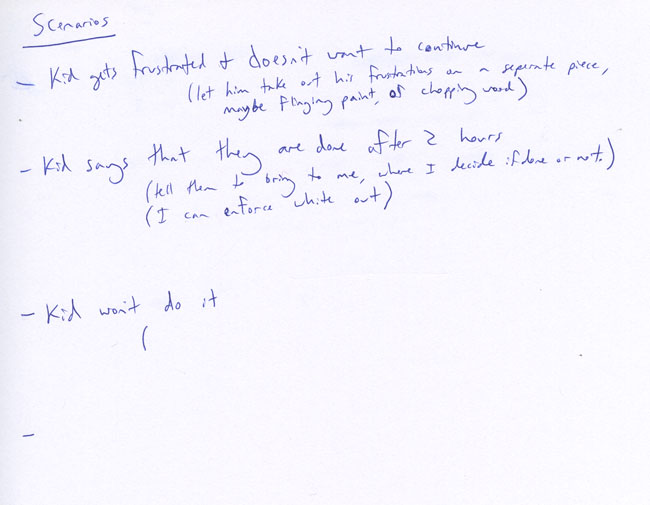 Scenarios
- Kid gets frustrated + doesn't want to continue
(let him take out his frustrations on a seperate piece,
maybe flinging paint, of chopping wood)
- Kid says that they are done after 2 hours
(tell them to bring to me, where I decide if done or not.)
(I can enforce white out)
- Kid won't do it
(
-